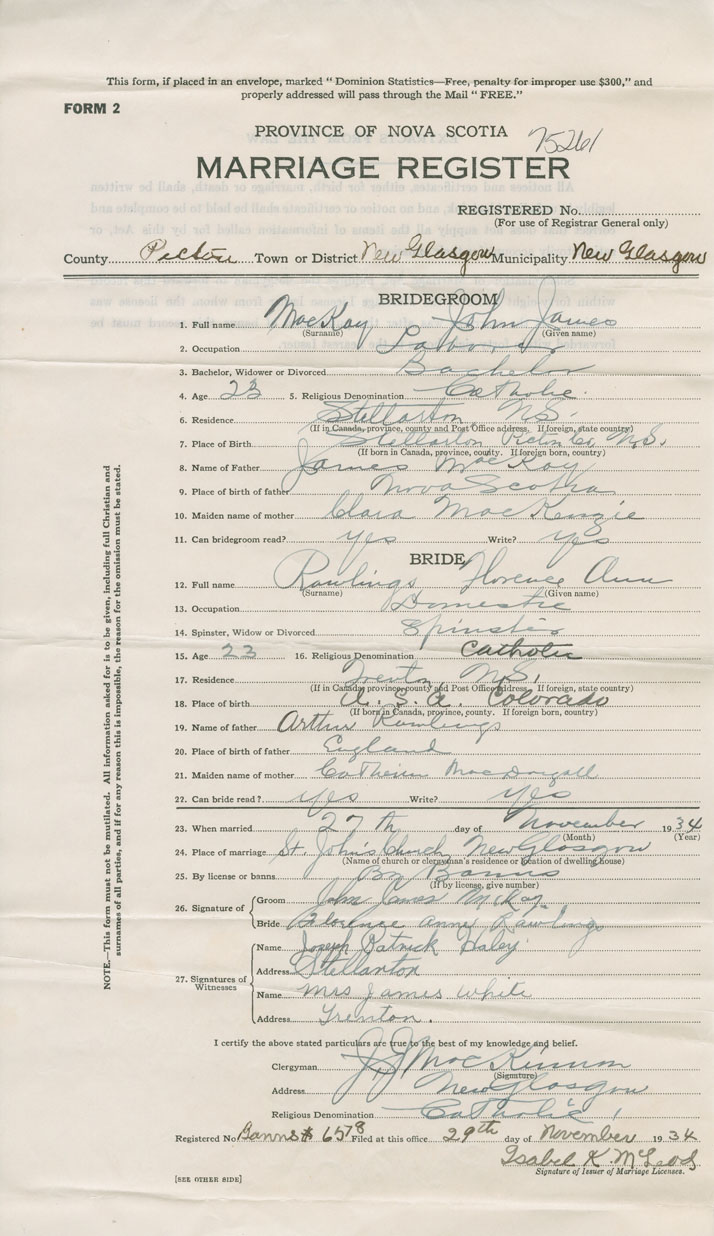 This form, if placed in an envelope, marked "Dominion Statistics—Free, penalty for improper use $300," and
properly addressed will pass through the Mail "FREE."
FORM 2
PROVINCE OF NOVA SCOTIA 75261
MARRIAGE REGISTER
REGISTERED No.
(For use of Registrar General only)
County Pictou Town or District New Glasgow Municipality New Glasgow
BRIDEGROOM
1. Full name MacKay John James
(Surname) (Given name)
2. Occupation Laborer
3. Bachelor, Widower or Divorced Bachelor
4. Age 23 5. Religious Denomination Catholic
6. Residence Stellarton NS.
(If in Canada, province, county and Post Office address. If foreign, state country)
7. Place of Birth Stellarton Pictou Co, N.S.
(If born in Canada, province, county. If foreign born, country)
8. Name of Father James MacKay
9. Place of birth of father Nova Scotia
10. Maiden name of mother Clara MacKenzie
11. Can bridegroom read? yes Write? yes
BRIDE
12. Full name Rawlings Florence Ann
(Surname) (Given name)
13. Occupation Domestic
14. Spinster, Widow or Divorced Spinster
15. Age 23 16. Religious Denomination Catholic
17. Residence Trenton N.S.
(If in Canada, province, county and Post Office address. If foreign, state country)
18. Place of birth U. S. A. Colorado
(If born in Canada, province, county. If foreign born, country)
19. Name of father Arthur Rawlings
20. Place of birth of father England
21. Maiden name of mother MacDougall
22. Can bride read? yes Write? yes
23. When married 27th day of November 1934
(Month) (Year)
24. Place of marriage St. John's Church New Glasgow
(Name of church or clergyman's residence or location of dwelling house)
25. By license or banns By Banns
(If by license, give number)
26. Signature of Groom John James McKay
Bride Florence Anne Rawlings
27. Signatures of Witnesses
Name Joseph Patrick Haley
Address Stellarton
Name Mrs James White
Address Trenton.
I certify the above stated particulars are true to the best of my knowledge and belief.
Clergyman J.J. MacKinnon
(Signature)
Address New Glasgow
Religious Denomination Catholic
Registered No Banns # 6578 Filed at this office 29th day of November 1934
Isabel K. McLeod
Signature of Issuer of Marriage Licenses.
[SEE OTHER SIDE]
NOTE.—This form must not be mutilated. All information asked for is to be given, including full Christian and
surnames of all parties, and if for any reason this is impossible, the reason for the omission must be stated.